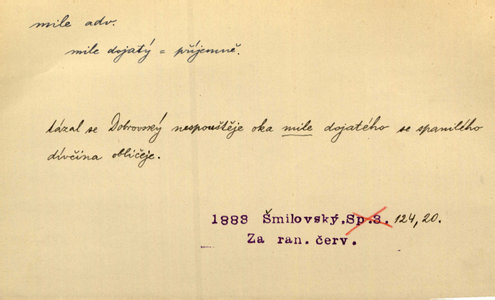 mile adv.
mile dojatý = příjemně.
tázal se Dobrovský nespouštěje oka mile dojatého se spanilého
dívčina obličeje.
1883 Šmilovský.Sp.3. 124,20.
Za ran. červ.